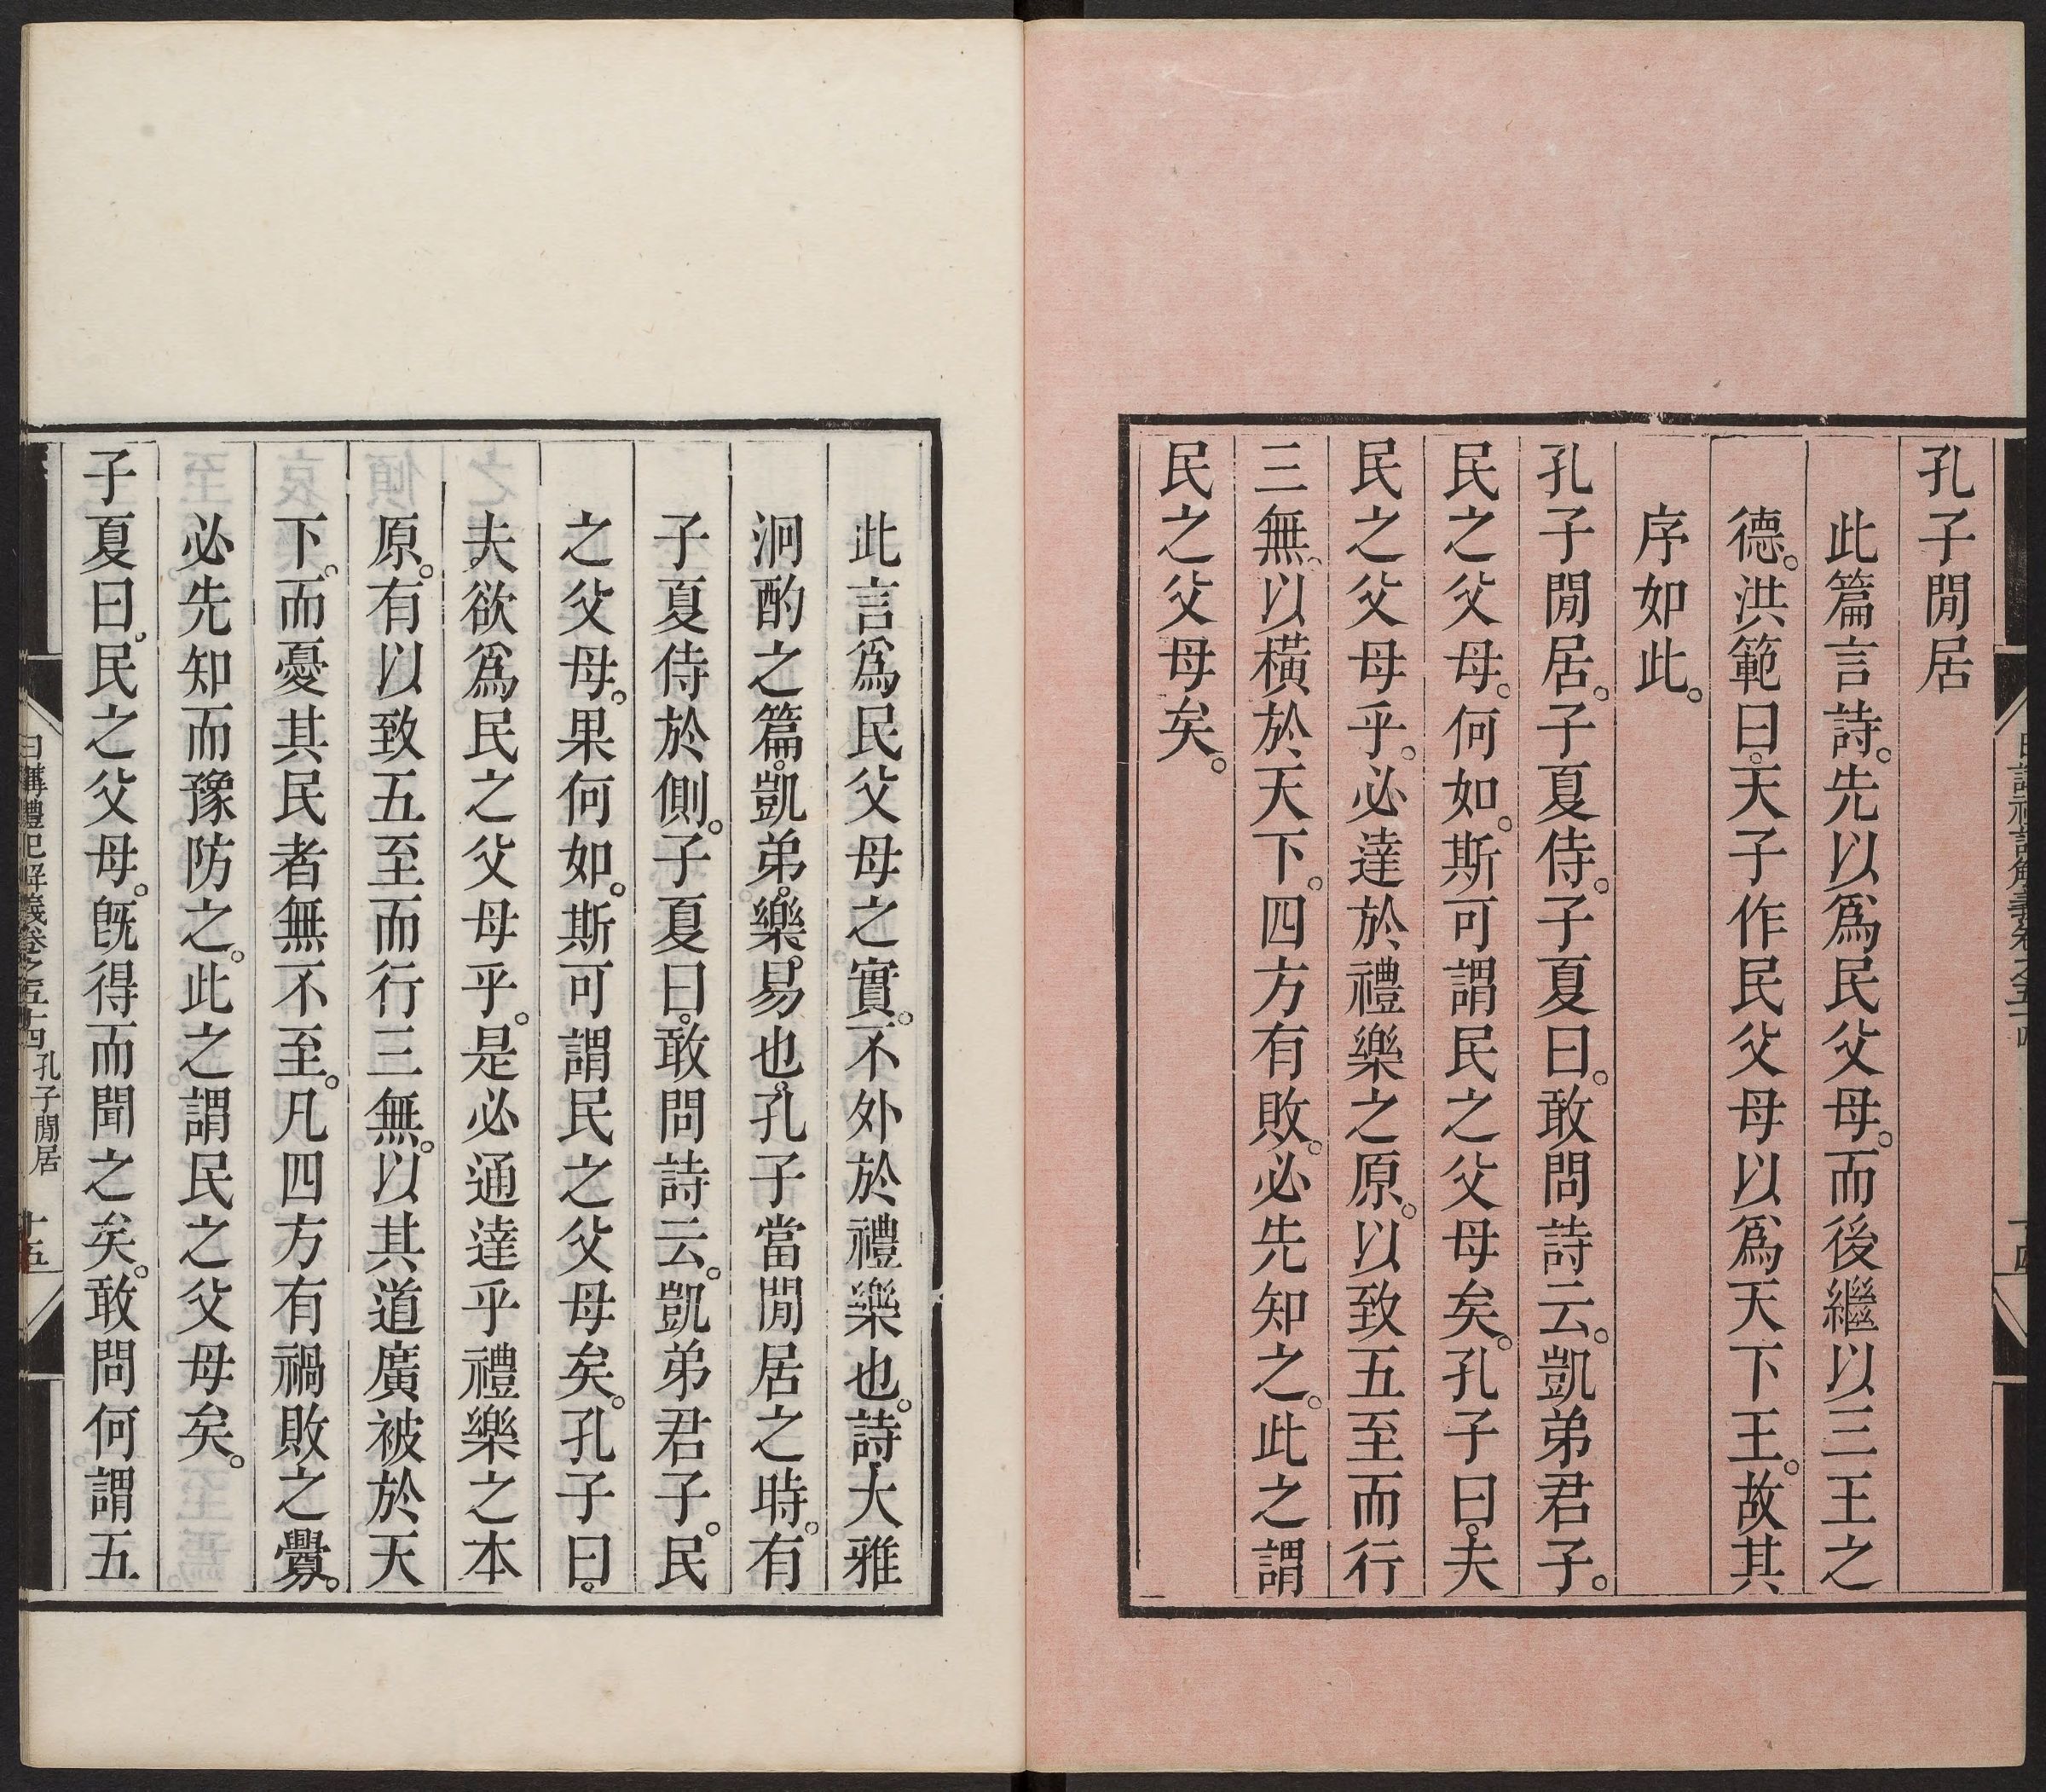 孔子閒居
此篇言詩。先以爲民父母。而後繼以三王之
德。洪範曰。天子作民父母以爲天下王。故其
序如此。
孔子閒居。子夏侍。子夏曰。敢問詩云。凱弟君子。
民之父母。何如。斯可謂民之父母矣。孔子曰。夫
民之父母乎。必達於禮樂之原。以致五至而行
三無、以橫於天下。四方有敗。必先知之。此之謂
民之父母矣。
此言爲民父母之實。不外於禮樂也。詩大雅
泂酌之篇。凱弟。樂易也。孔子當閒居之時。有
子夏侍於側。子夏曰。敢問詩云。凱弟君子。民
之父母。果何如。斯可謂民之父母矣。孔子曰。
夫欲爲民之父母乎。是必通達乎禮樂之本
原。有以致五至而行三無。以其道廣被於天
下。而憂其民者無不至。凡四方有禍敗之釁。
必先知而豫防之。此之謂民之父母矣。
子夏曰。民之父母。旣得而聞之矣。敢問何謂五
日講禮記解義卷之五十四 孔子閒居 十五